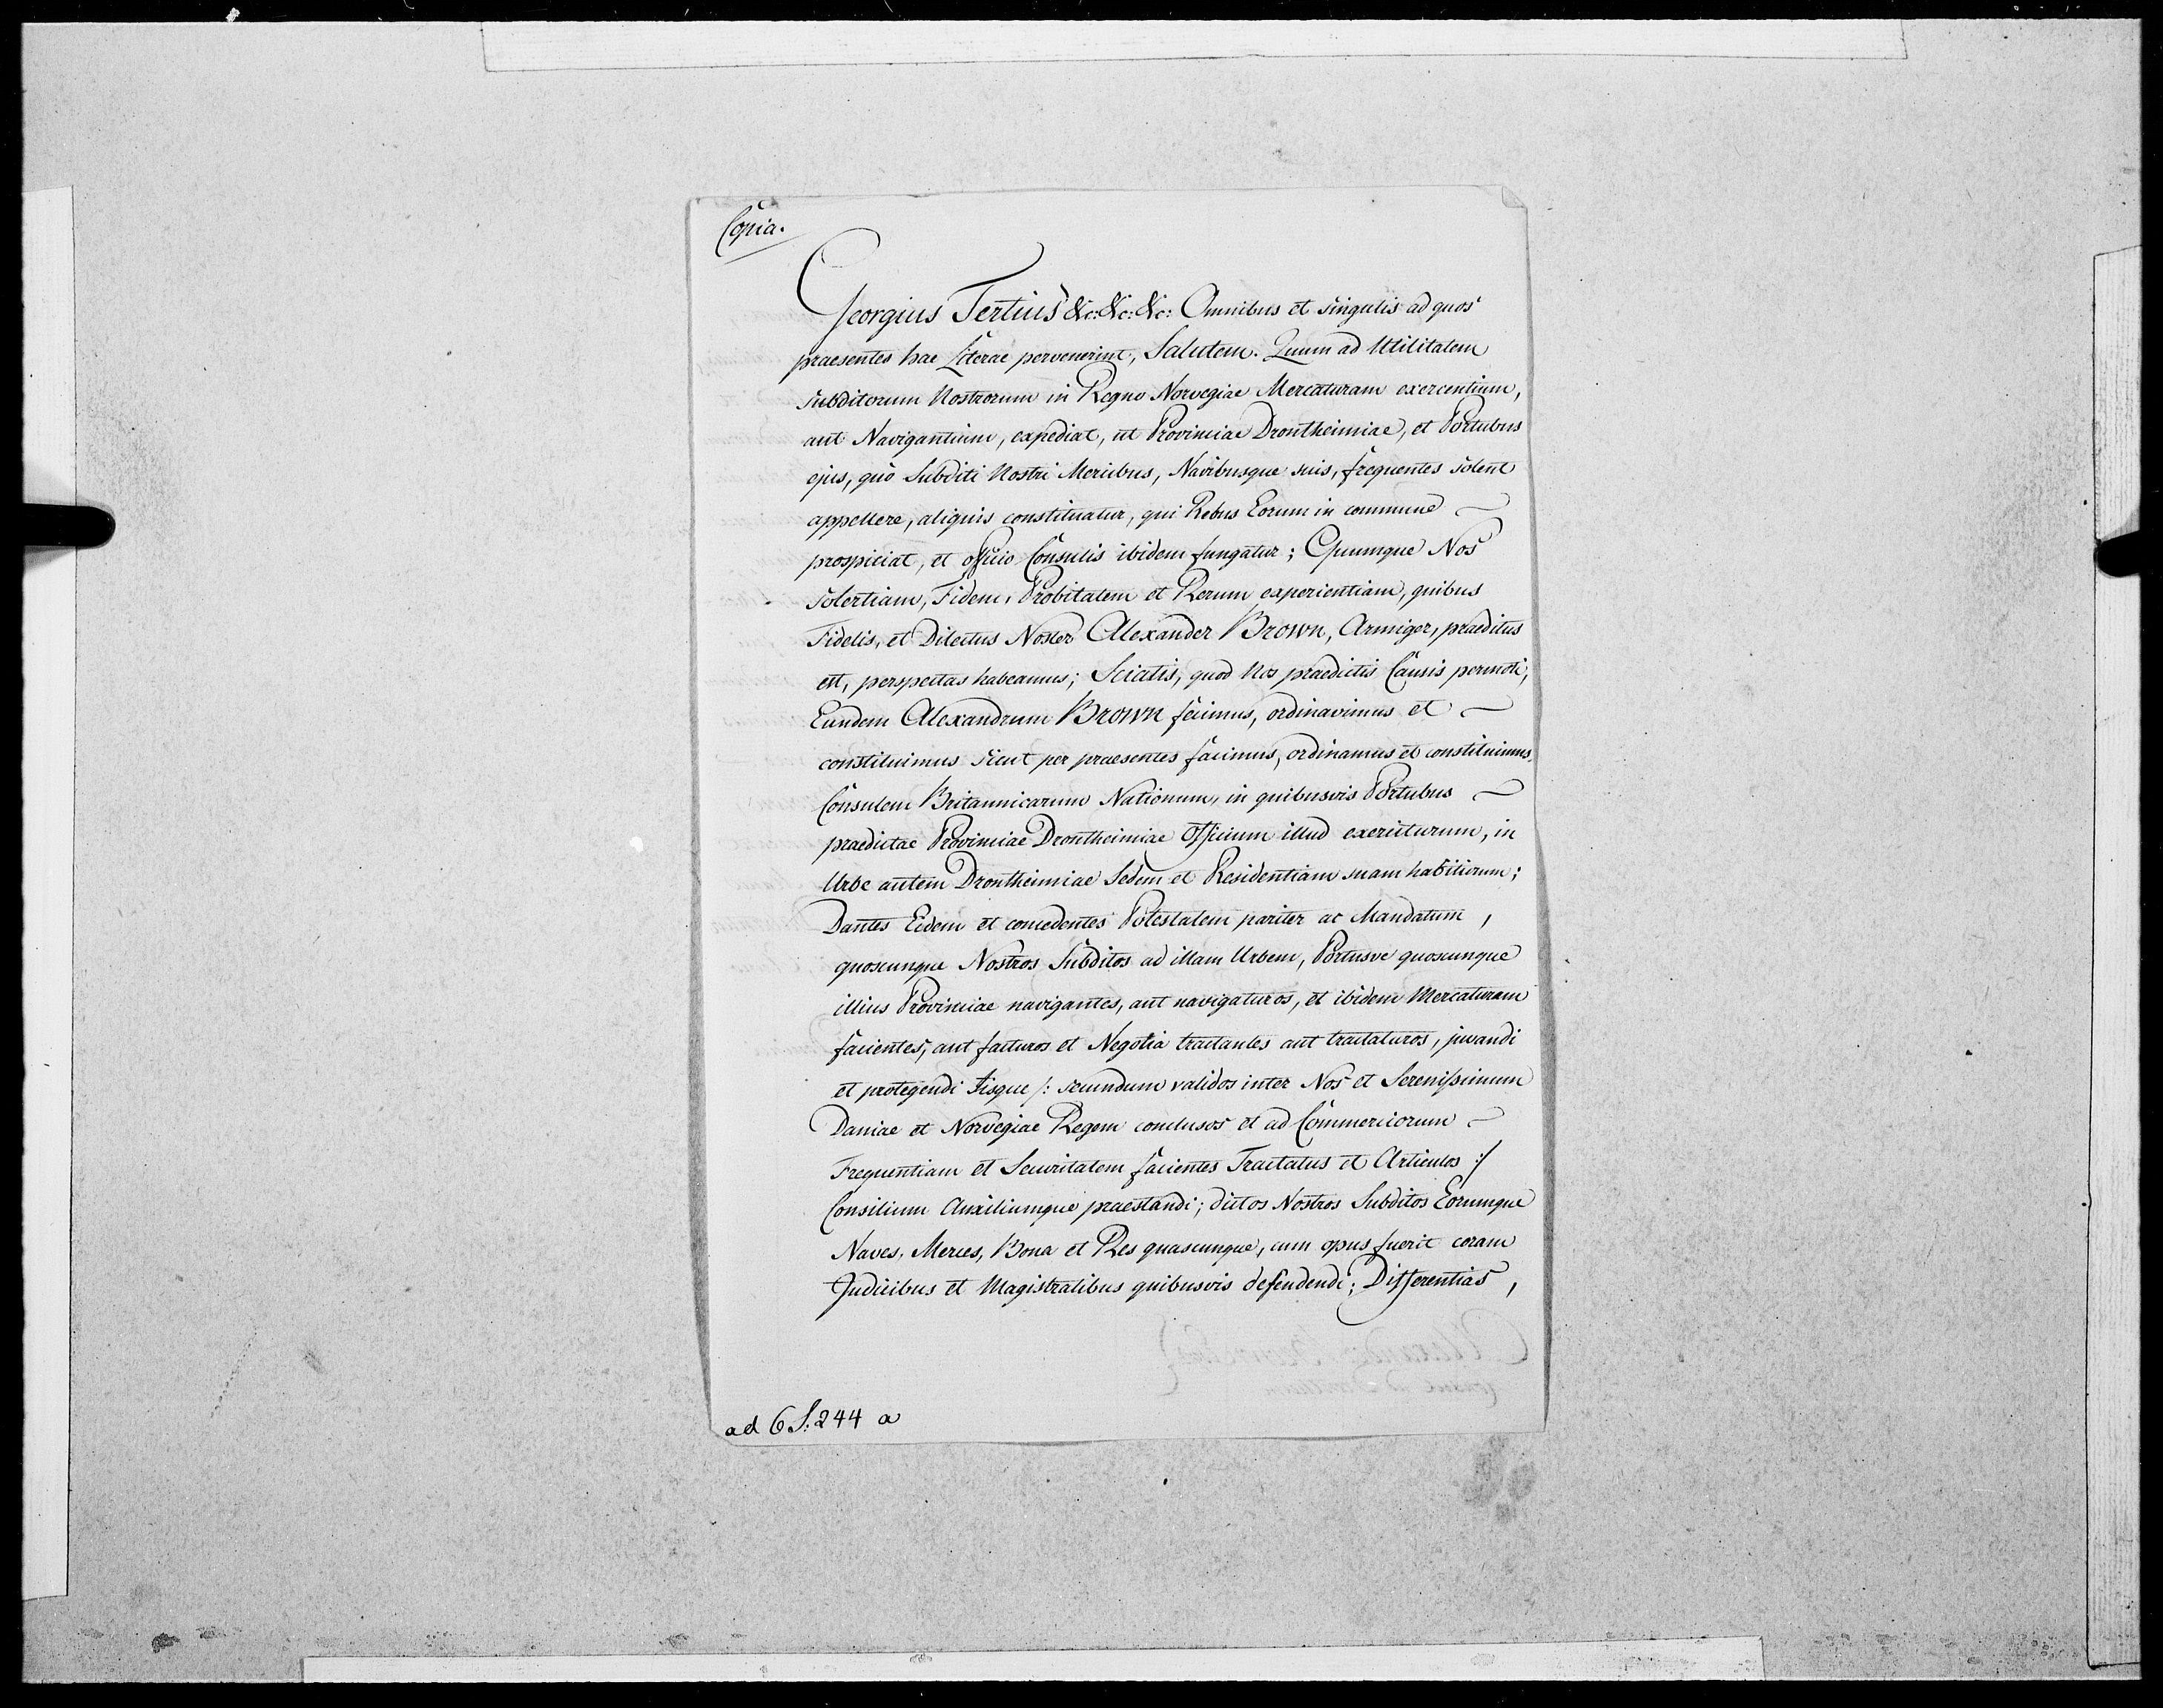 Copia.
Georgius Tertius &c: &c: &c: Omnibus et singulis ad quos
praesentes hae Literae pervenerint, Salutem. Quum ad Utilitatem
Subditorum Nostrorum in Regno Norvegiae Mercaturam exercentium,
aut Navigantium, expediat, ut Provinciae Drontheimiae, et Portubus
ejus, quo Subditi Nostri Mercibus, Navibusque suis, frequentes solent
appellere, aliquis constituatur, qui Rebus Eorum in commune
prospiciat, et officio Consulis ibidem fungatur; Quumque Nos
Solertiam, Fidem, Probitatem et Rerum experientiam, quibus
Fidelis, et Dilectus Noster Alexander Brown, Armiger, praeditus
est, perspectas habeamus; Sciatis, quod Nos praedictis Causis permoti,
Eundem Alexandrum Brown fecimus, ordinavimus et
constituimus sicut per praesentes facimus, ordinamus et constituimus,
Consulem Britannicarum Nationum, in quibusvis Portubus
praedictae Provinciae Drontheimiae Officium illud exerciturum, in
Urbe autem Drontheimiae Sedem et Residentiam suam habiturum;
Dantes Eidem et concedentes Potestatem pariter ac Mandatum,
quoscunque Nostros Subditos ad illam Urbem, Portusve quoscunque
illius Provinciae navigantes, aut navigaturos, et ibidem Mercaturam
facientes, aut facturos et Negotia tractantes aut tractaturos, juvandi
et protegendi Iisque /: secundum validos inter Nos et Serenissimum
Daniae et Norvegiae Regem conclusos et ad Commerciorum
Frequentiam et Securitatem facientes Tractatus et Articulos :/
Consilium Auxiliumque praestandi; dictos Nostros Subditos Eorumque
Naves, Merces, Bona et Res quascunque, cum opus fuerit coram
Judicibus et Magistratibus quibusvis defendendi; Differentias,
ad 6 S: 244 a